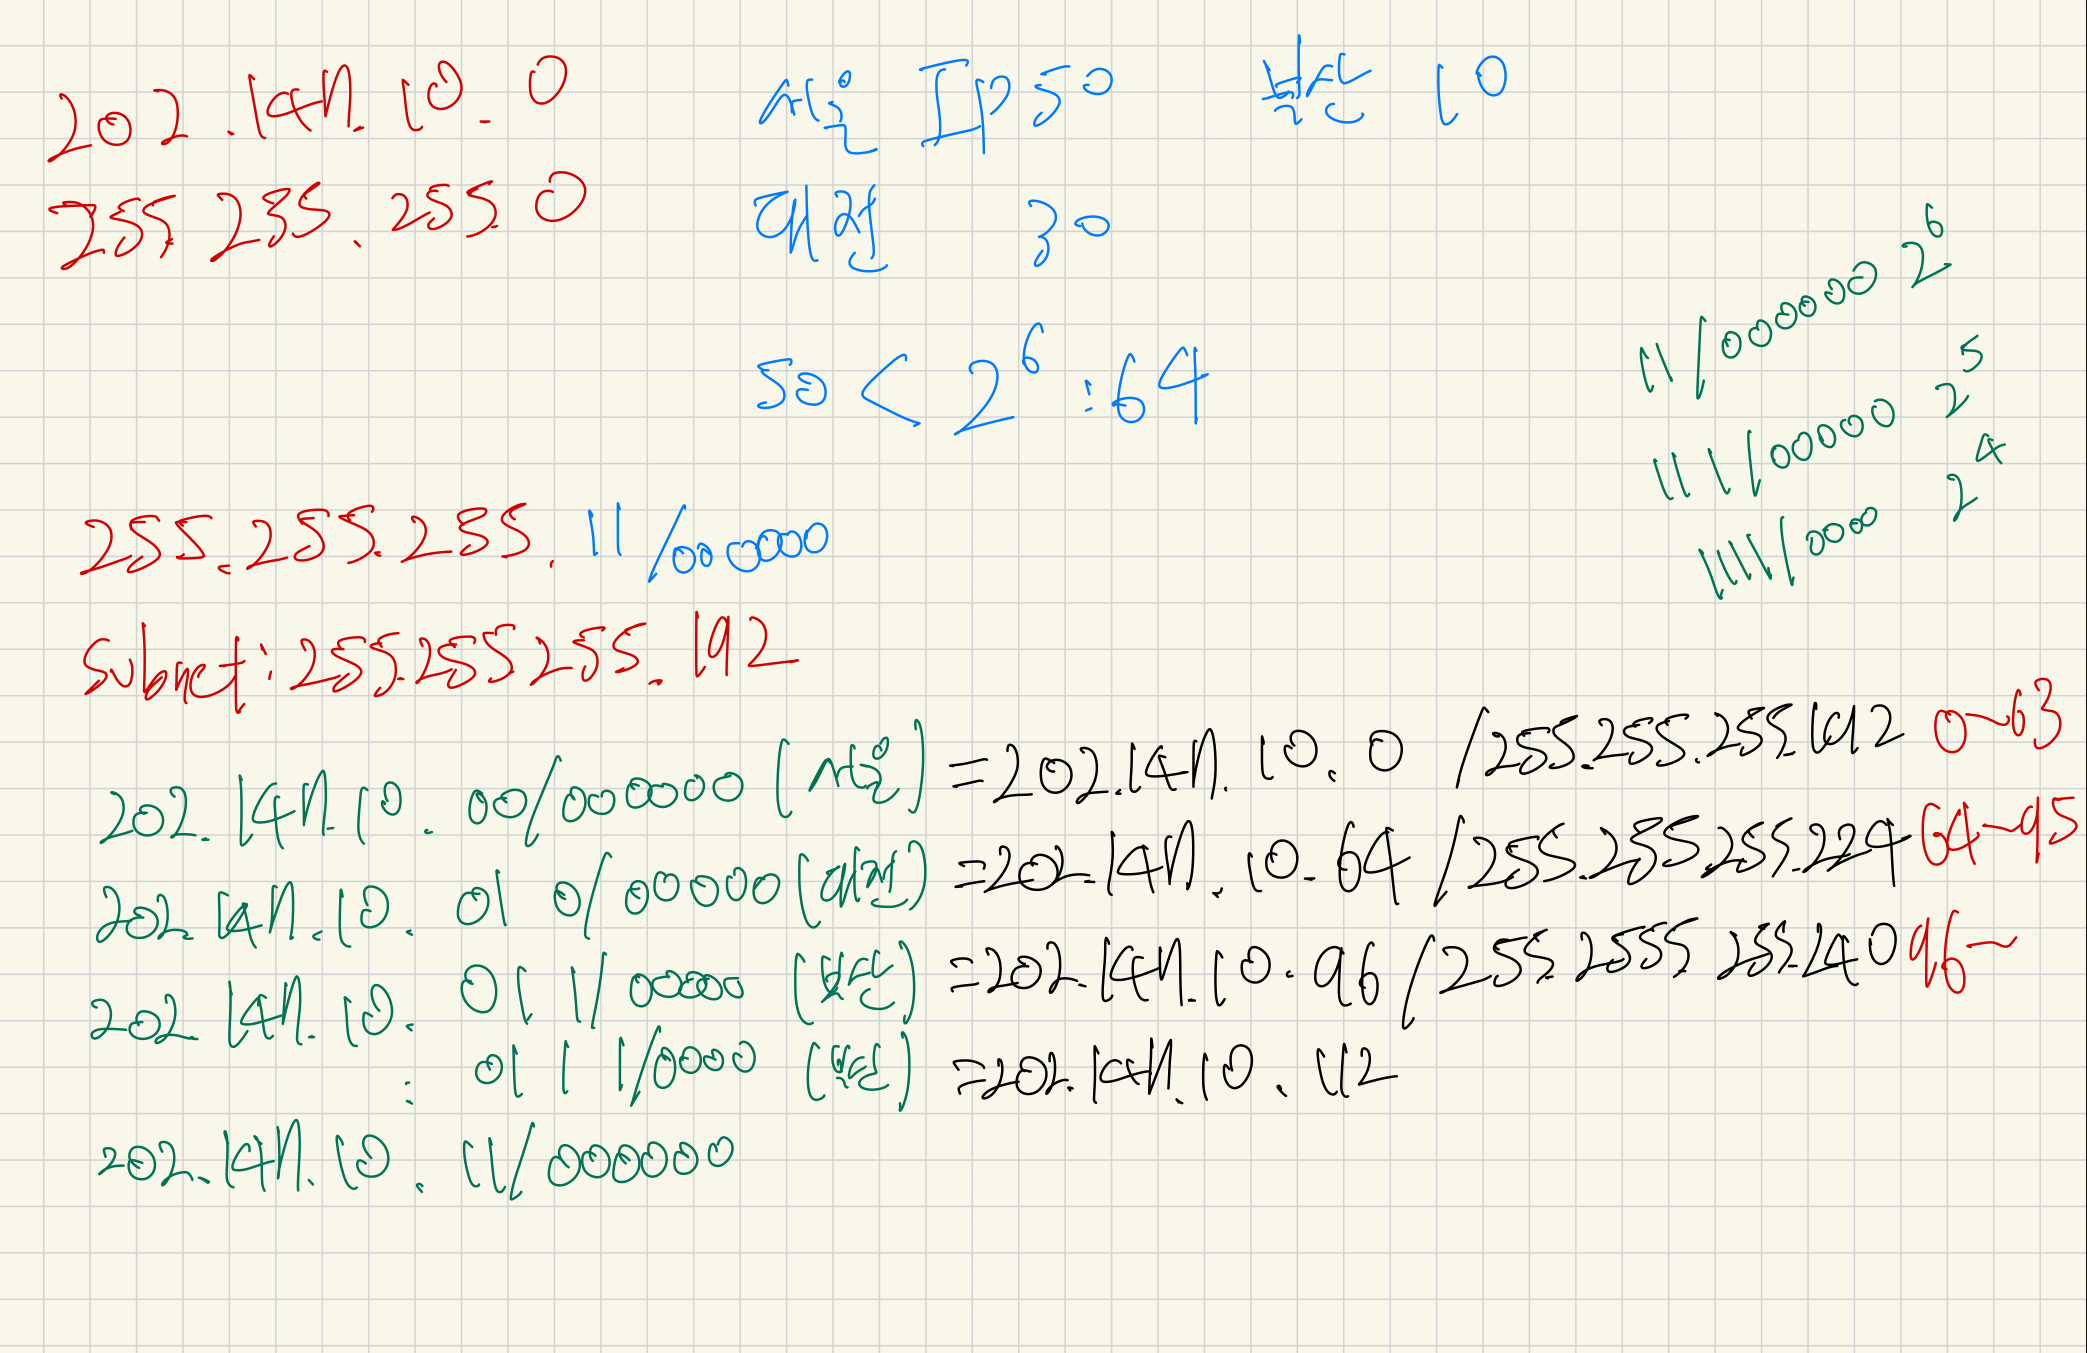 202.147.10.0 서울 IP 50 부산 10
255.255.255.0 대전 30
11/000000 2^6
50 < 2^6 : 64
111/00000 2^5
1111/0000 2^4
255.255.255.11/000000
Subnet: 255.255.255.192
202.147.10.00/000000 (서울) = 202.147.10.0 /255.255.255.192 0~63
202.147.10.010/00000 (대전) = 202.147.10.64 /255.255.255.224 64~95
202.147.10.011/00000 (부산) = 202.147.10.96 /255.2555 255.240 96~
: 0111/0000 (부산) = 202.147.10.112
202.147.10.11/000000